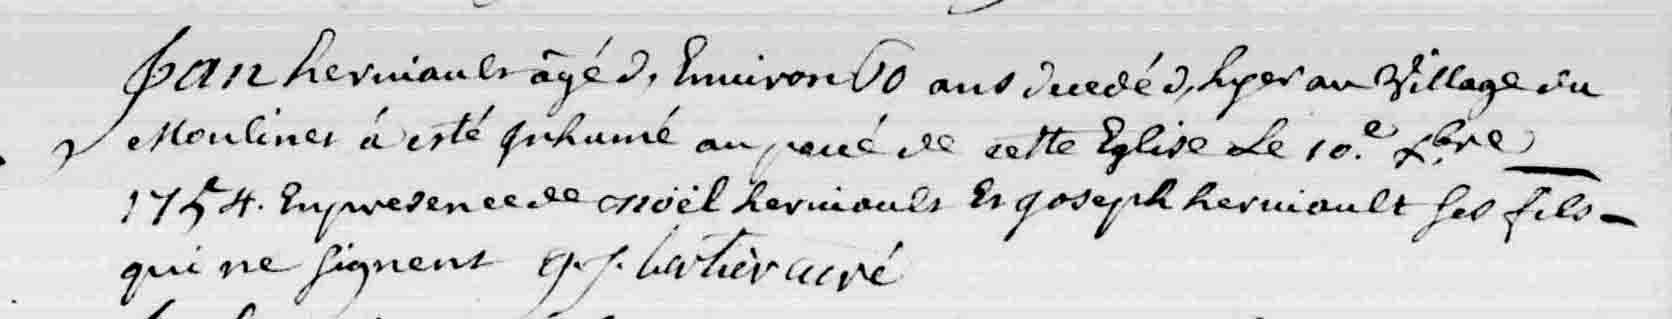 Jan herviault âgé d'Environ 60 ans decedé d'hyer au Village du
Moulinet á esté Inhumé au pavé de cette Eglise Le 10.e Xbre
1754. En presence de Noël herviault Et Joseph herviault Ses fils
qui ne Signent curé